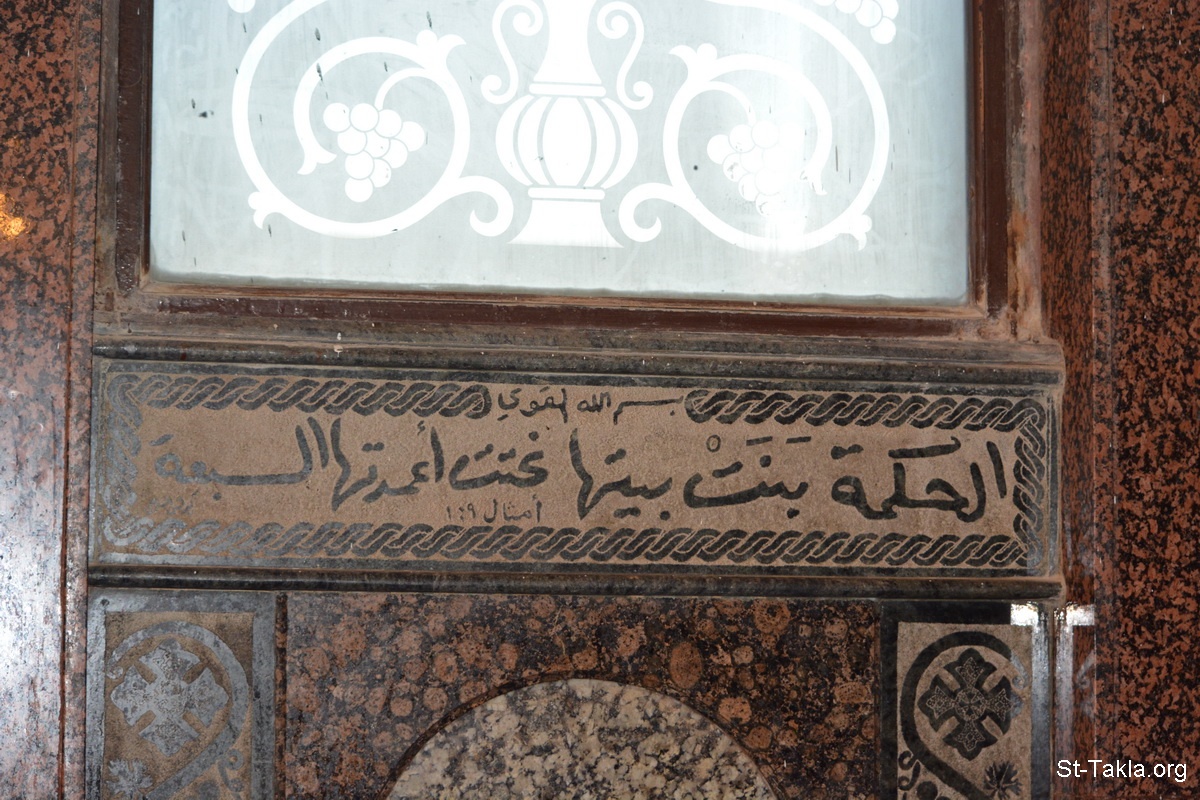 بسم الله القوي
الحكمة بَنَتْ بيتها نحتت أعمدتها السبعة
أمثال ٩:١
St-Takla.org